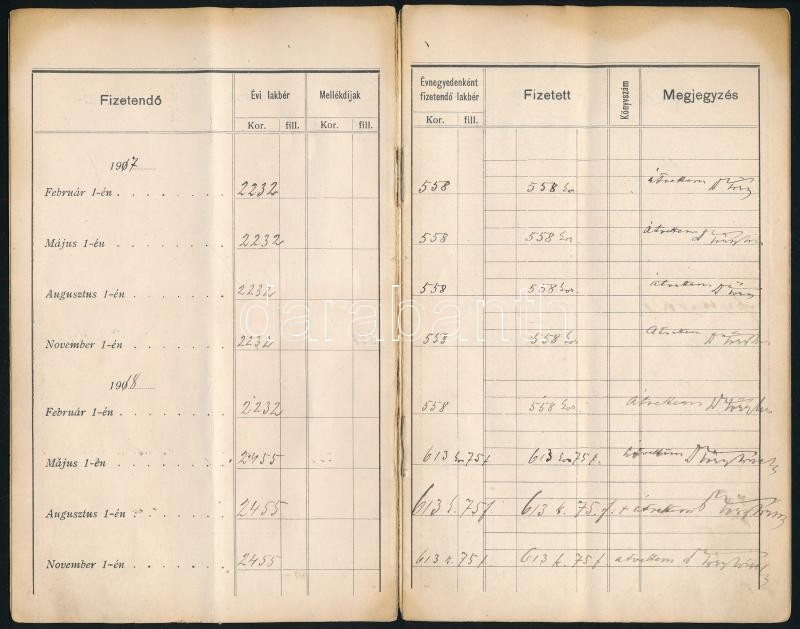 Fizetendő Évi lakbér Mellékdijak Évnegyedenként fizetendő lakbér Fizetett Könyvszám Megjegyzés
Kor. fill. Kor. fill. Kor. fill.
1917
Február 1-én . . . . . . . 2232 558 558 kor átvettem Dr
Május 1-én . . . . . . . 2232 558 558 kor átvettem Dr
Augusztus 1-én . . . . . . 2232 558 558 kor. átvettem Dr
darabanth
November 1-én . . . . . . 2232 558 558 kor. Átvettem Dr
1918
Február 1-én . . . . . . . 2232 558 558 kor. Átvettem Dr
Május 1-én . . . . . . . 2455 613 kr 75 f 613 kor 75 f. átvettem Dr
Augusztus 1-én . . . . . . 2455 613 k. 75 f 613 k. 75. f. átvettem Dr
November 1-én . . . . . . 2455 613 k. 75 f 613 k. 75 f átvettem Dr